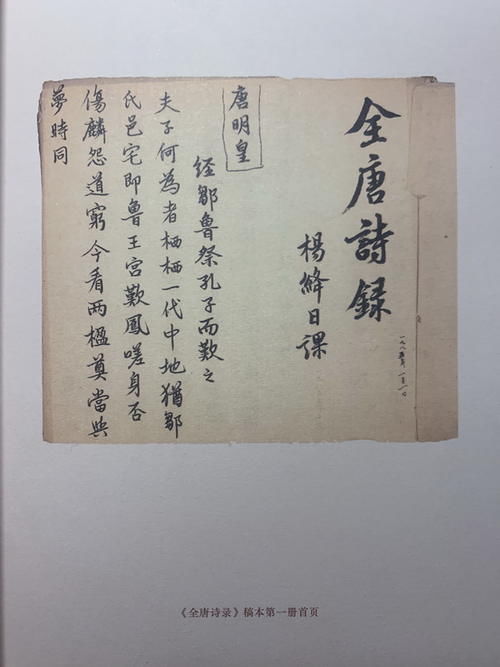 全唐詩録
楊絳日課
唐明皇
经鄒魯祭孔子而歎之
夫子何為者栖栖一代中地猶鄒
氏邑宅即魯王宮歎鳳嗟身否
傷麟怨道窮今看两楹奠當與
夢時同
《全唐诗录》稿本第一册首页